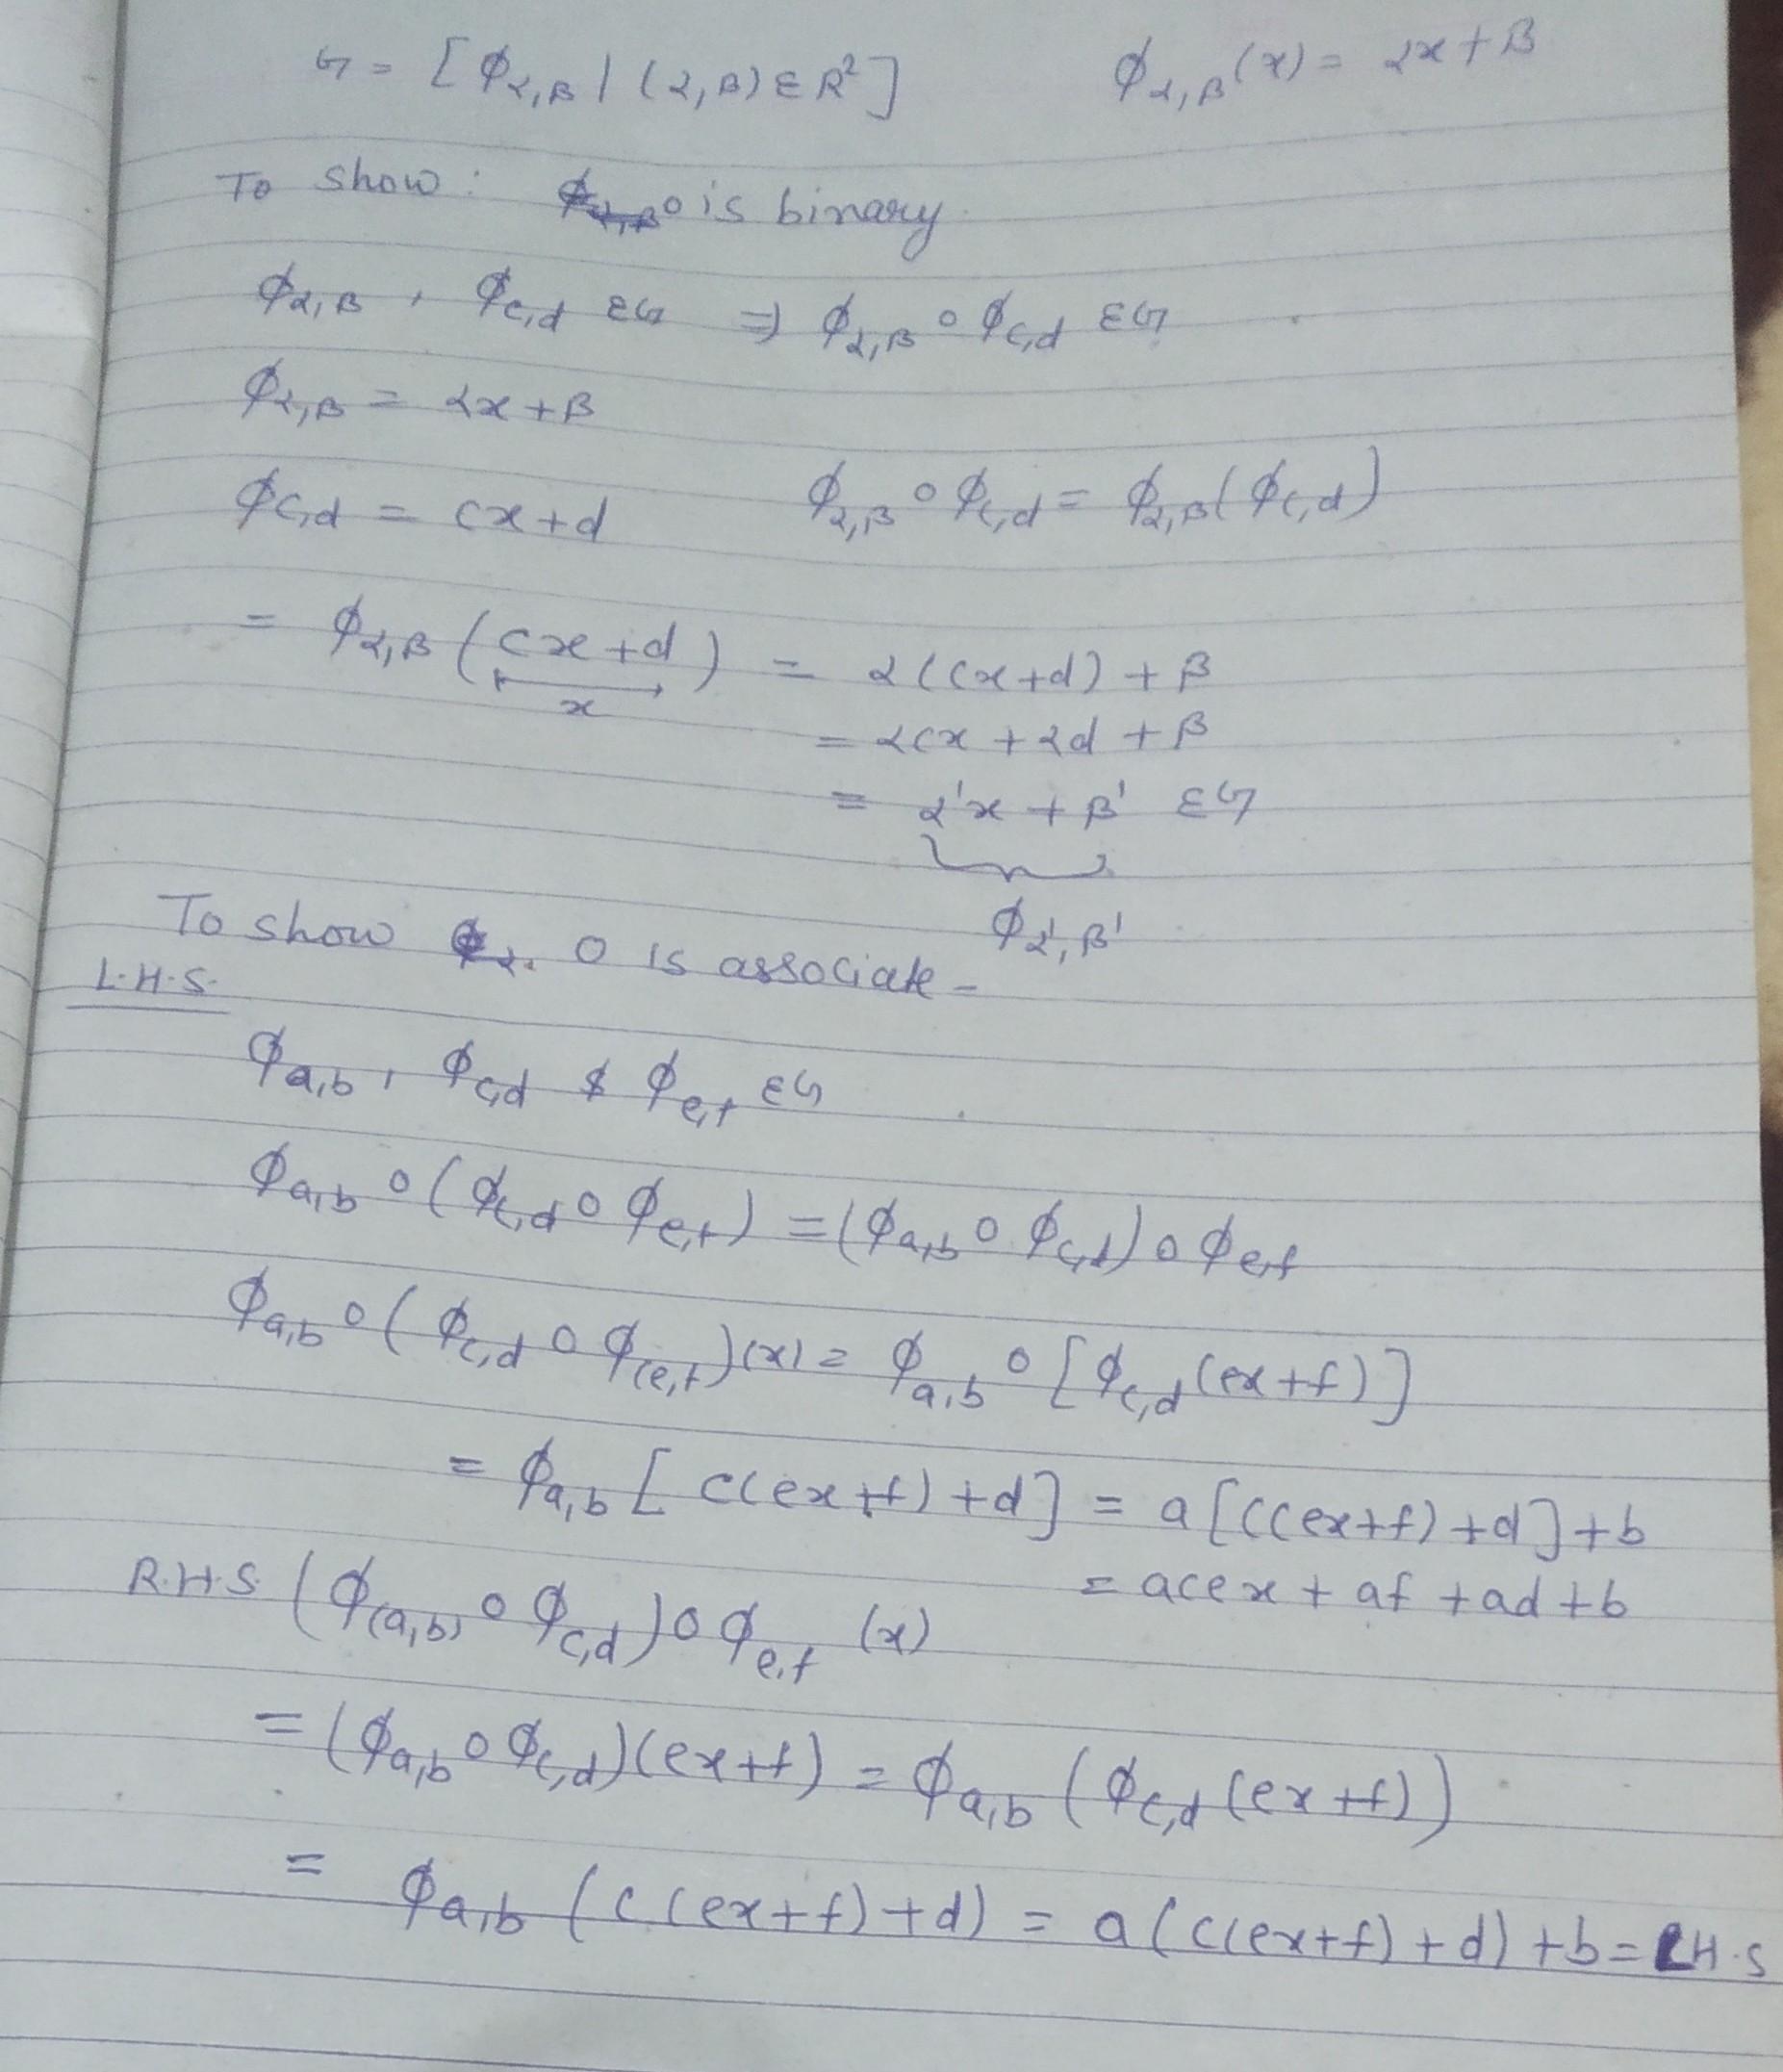 G = [ϕα,β | (α,β) ∈ R²] ϕα,β(x) = αx+β
To show: o is binary
ϕα,β , ϕc,d ∈ G ⇒ ϕα,β o ϕc,d ∈ G
ϕα,β = αx+β
ϕc,d = cx+d ϕα,β o ϕc,d = ϕα,β(ϕc,d)
= ϕα,β (cx+d) = α(cx+d) + β
x
= αcx + αd + β
= α'x + β' ∈ G
ϕα',β'
To show o is associate -
L.H.S.
ϕa,b , ϕc,d & ϕe,f ∈ G
ϕa,b o (ϕc,d o ϕe,f) = (ϕa,b o ϕc,d) o ϕe,f
ϕa,b o (ϕc,d o ϕ(e,f))(x) = ϕa,b o [ϕc,d (ex+f)]
= ϕa,b [c(ex+f)+d] = a[c(ex+f)+d]+b
= acex + af + ad + b
R.H.S. (ϕ(a,b) o ϕc,d) o ϕe,f (x)
= (ϕa,b o ϕc,d)(ex+f) = ϕa,b (ϕc,d (ex+f))
= ϕa,b (c(ex+f)+d) = a(c(ex+f)+d)+b = LH.S